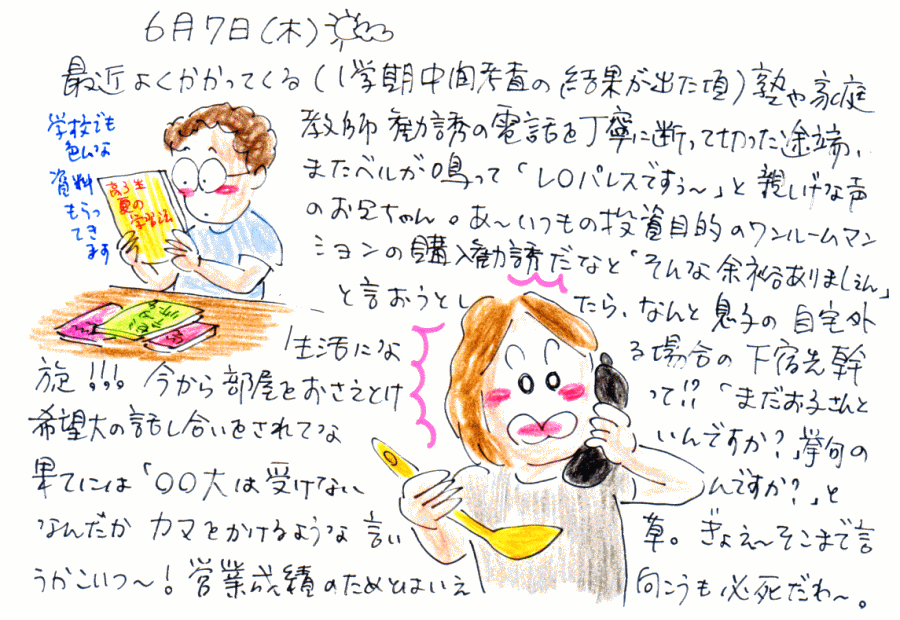 6月7日(木)
最近よくかかってくる(1学期中間考査の結果が出た頃)塾や家庭
教師勧誘の電話を丁寧に断って切った途端、
またベルが鳴って「レ○パレスですぅ~」と親しげな声
のお兄ちゃん。あ~いつもの投資目的のワンルームマン
ションの購入勧誘だなと「そんな余裕ありましぇん」
と言おうとしたら、なんと息子の自宅外
生活になる場合の下宿先斡
旋!!!今から部屋をおさえとけって!?「まだお子さんと
希望大の話し合いをされてないんですか?」挙句の
果てには「○○大は受けないんですか?」と
なんだかカマをかけるような言い草。ぎょえ~そこまで言
うかこいつ~!営業成績のためとはいえ向こうも必死だわ~。
学校でも
色んな
資料
もらっ
てき
ます
高3生
夏の
学習法